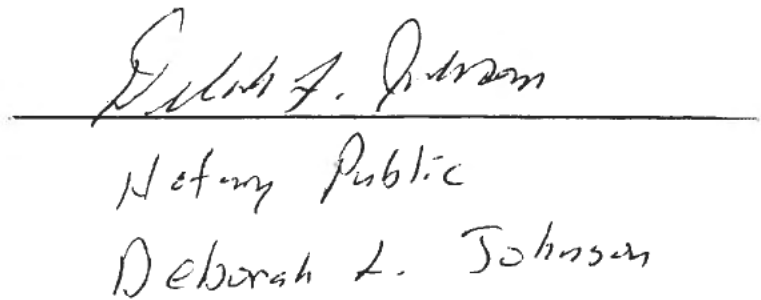 Deborah L. Johnson
Notary Public
Deborah L. Johnson